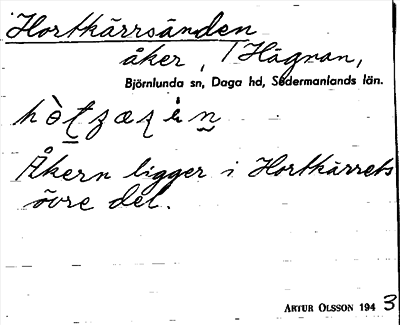 Hortkärrsänden
åker, Hägnan,
Björnlunda sn, Daga hd, Södermanlands län.
Åkern ligger i Hortkärrets
övre del.
ARTUR OLSSON 194 3